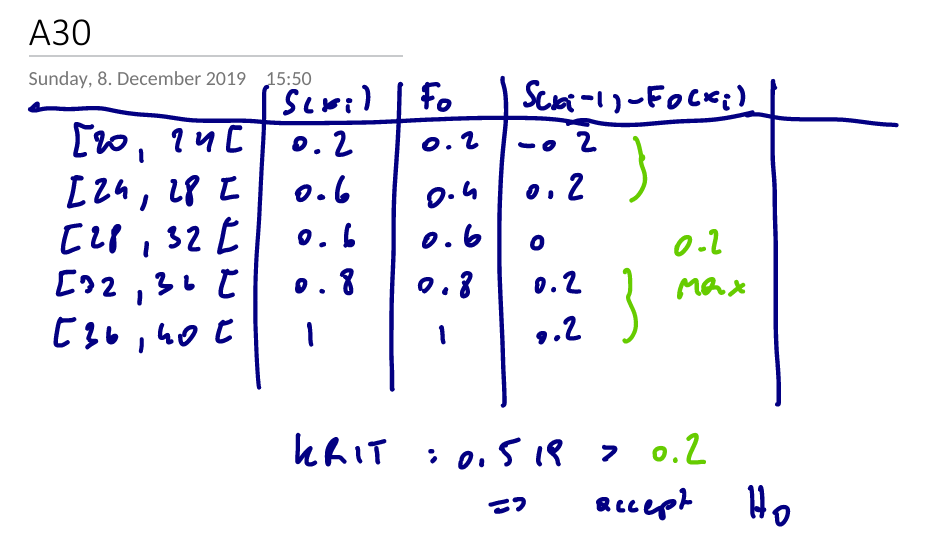 A30
Sunday, 8. December 2019 15:50
S(xi) F0 S(xi-1)-F0(xi)
[20, 24[ 0.2 0.2 -0 2
[24, 28 [ 0.6 0.4 0.2
[28, 32 [ 0.6 0.6 0
0.2
[32, 36 [ 0.8 0.8 0.2 max
[36, 40 [ 1 1 0.2
KRIT : 0.519 > 0.2
=> accept H0